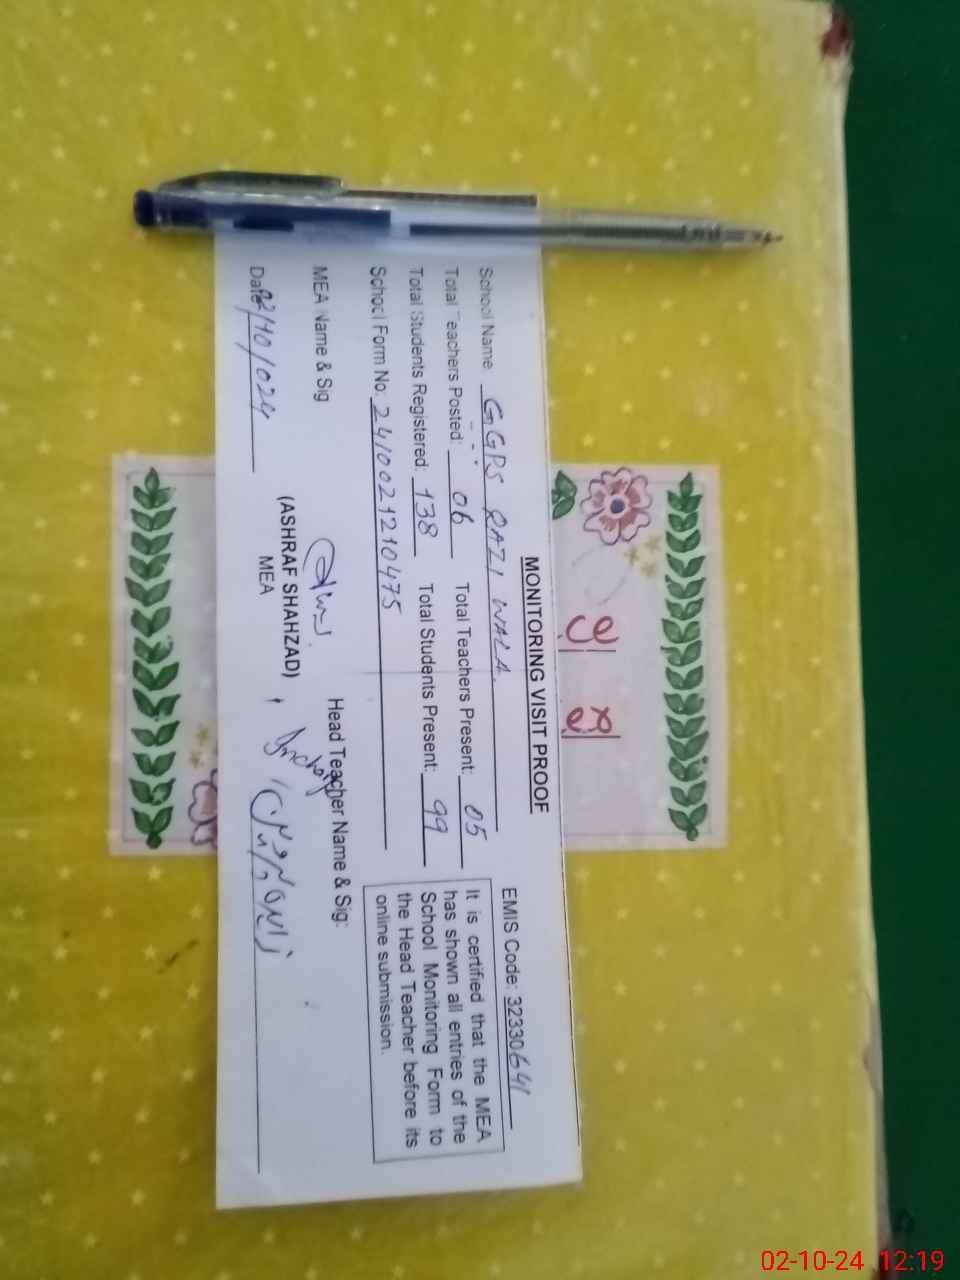 MONITORING VISIT PROOF
EMIS Code: 32330641
School Name: GGPS RAZI WALA
Total Teachers Posted: 06 Total Teachers Present: 05
Total Students Registered: 138 Total Students Present: 99
School Form No: 241002121 0475
It is certified that the MEA
has shown all entries of the
School Monitoring Form to
the Head Teacher before its
online submission.
MEA Name & Sig
Head Teacher Name & Sig:
(ASHRAF SHAHZAD)
MEA
Incharge
Date 02/10/024
02-10-24 12:19